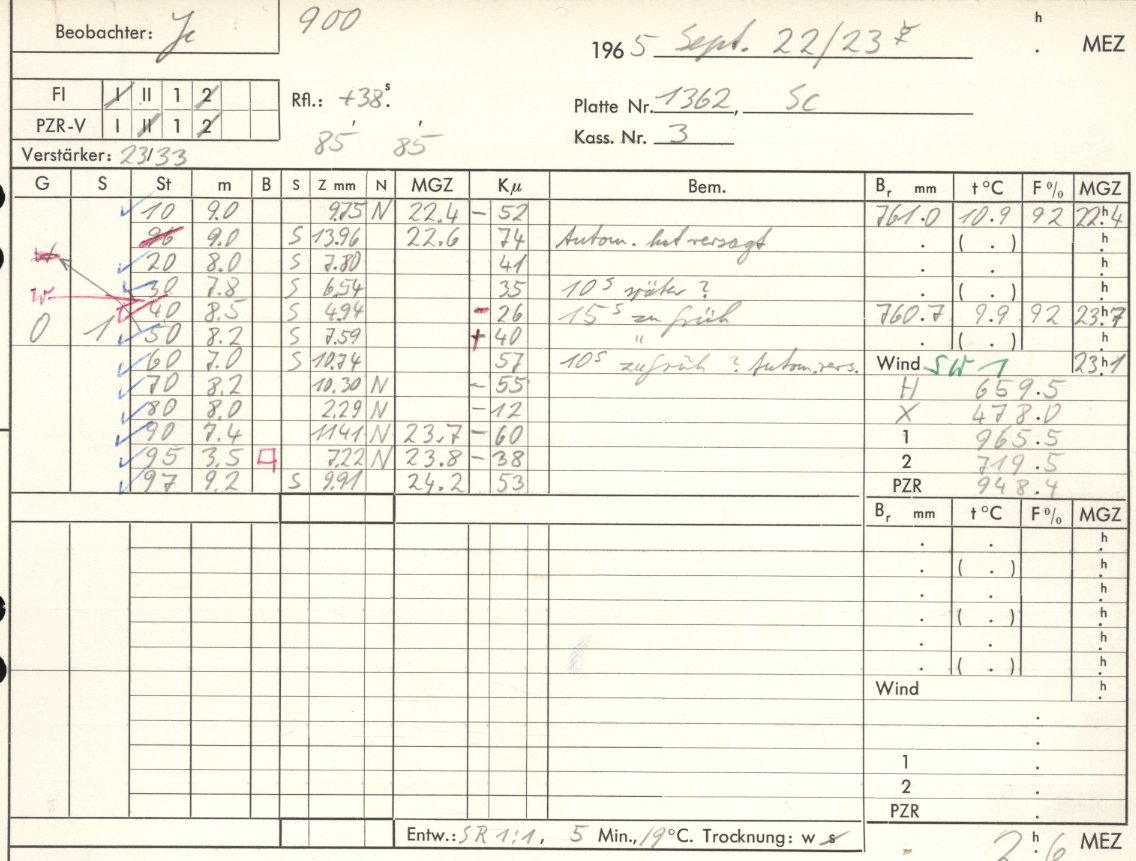 Beobachter:
900
1965 Sept. 22/23
h . MEZ
FI I II 1 2
Rfl.: +38s.
Platte Nr. 1362, Sc
PZR-V I II 1 2
85' 85'
Kass. Nr. 3
Verstärker: 23/33
G S St m B S Z mm N MGZ Kμ Bem. Br mm t °C F % MGZ
10 9.0 9.75 N 22.4 - 52 761.0 10.9 92 22h.4
96 9.0 S 13.96 22.6 74 Autom. hat versagt . ( . ) h.
20 8.0 S 7.80 41 . . h.
w 30 7.8 S 6.54 35 10s später ? . ( . ) h.
40 8.5 S 4.94 - 26 15s zu früh 760.7 9.9 92 23h.7
0 1 50 8.2 S 7.59 + 40 " . ( . ) h.
60 7.0 S 10.74 57 10s zu früh ? Autom. vers. Wind SW 1 23h.1
70 8.2 10.30 N - 55 H 659.5
80 8.0 2.29 N - 12 X 478.0
90 7.4 11.41 N 23.7 - 60 1 965.5
95 3.5 7.22 N 23.8 - 38 2 719.5
97 9.2 S 9.91 24.2 53 PZR 948.4
Br mm t °C F % MGZ
. . h.
. ( . ) h.
. . h.
. ( . ) h.
. . h.
. ( . ) h.
Wind h.
.
.
1 .
2 .
PZR .
Entw.: SR 1:1, 5 Min., 19 °C. Trocknung: w s
2h.6 MEZ